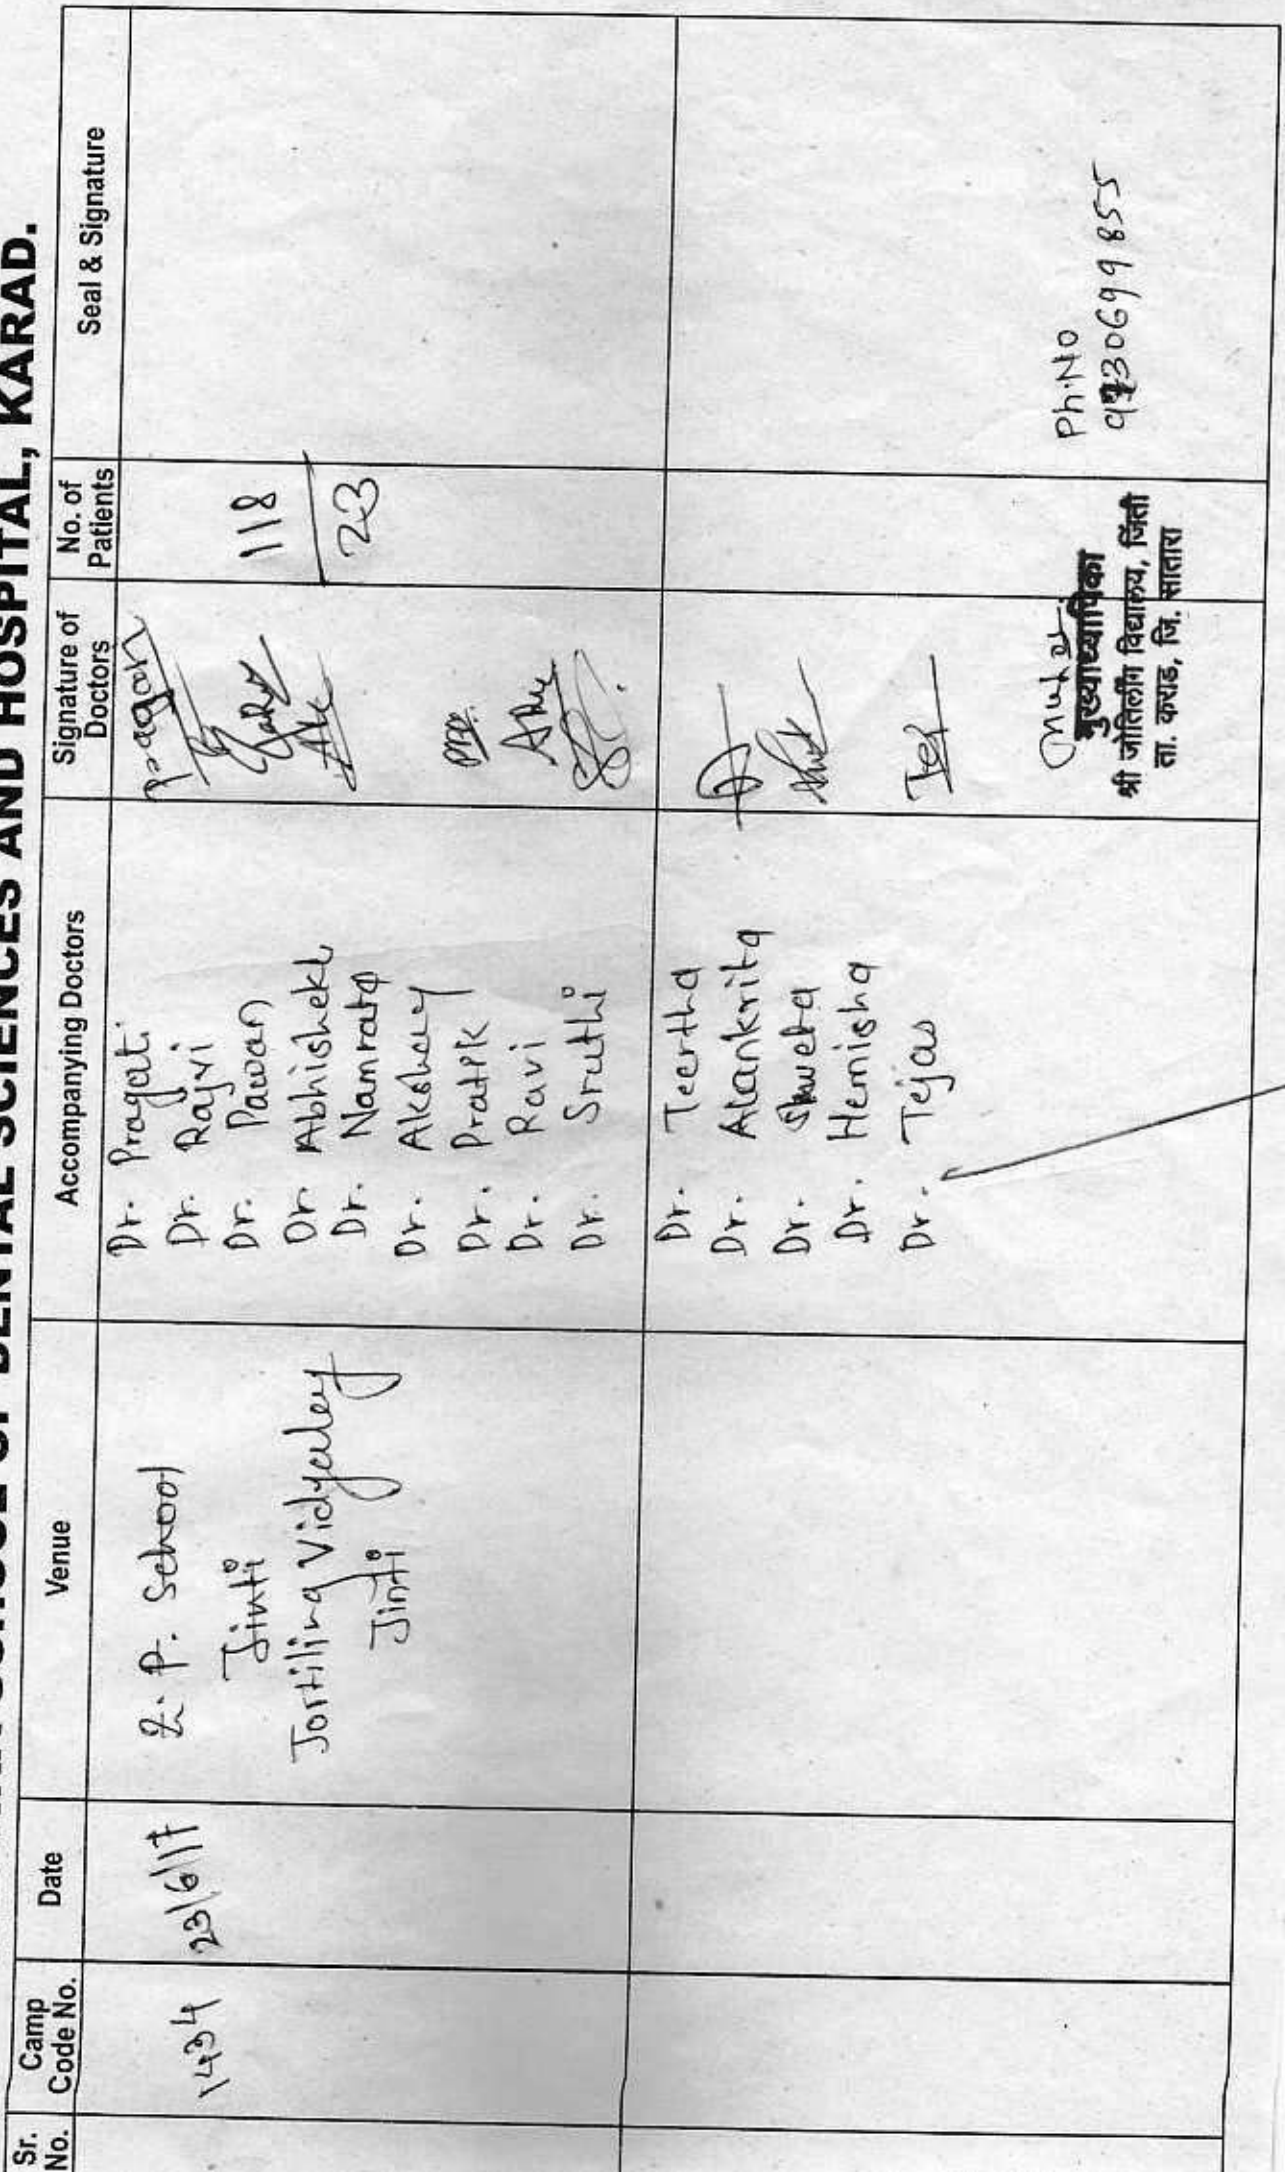 SCHOOL OF DENTAL SCIENCES AND HOSPITAL, KARAD.
Sr. No.
Camp Code No.
Date
Venue
Accompanying Doctors
Signature of Doctors
No. of Patients
Seal & Signature
1434
23/6/17
Z. P. School
Jinti
Jortiling Vidyaley
Jinti
Dr. Pragati
Dr. Rajvi
Dr. Pawan
Dr. Abhishekh
Dr. Namrata
Dr. Akshay
Dr. Pratik
Dr. Ravi
Dr. Sruthi
118
23
Dr. Teertha
Dr. Alankrita
Dr. Shweta
Dr. Hemisha
Dr. Tejas
Tej
मुख्याध्यापिका
श्री जोतिर्लींग विद्यालय, जिंती
ता. कराड, जि. सातारा
Ph.No